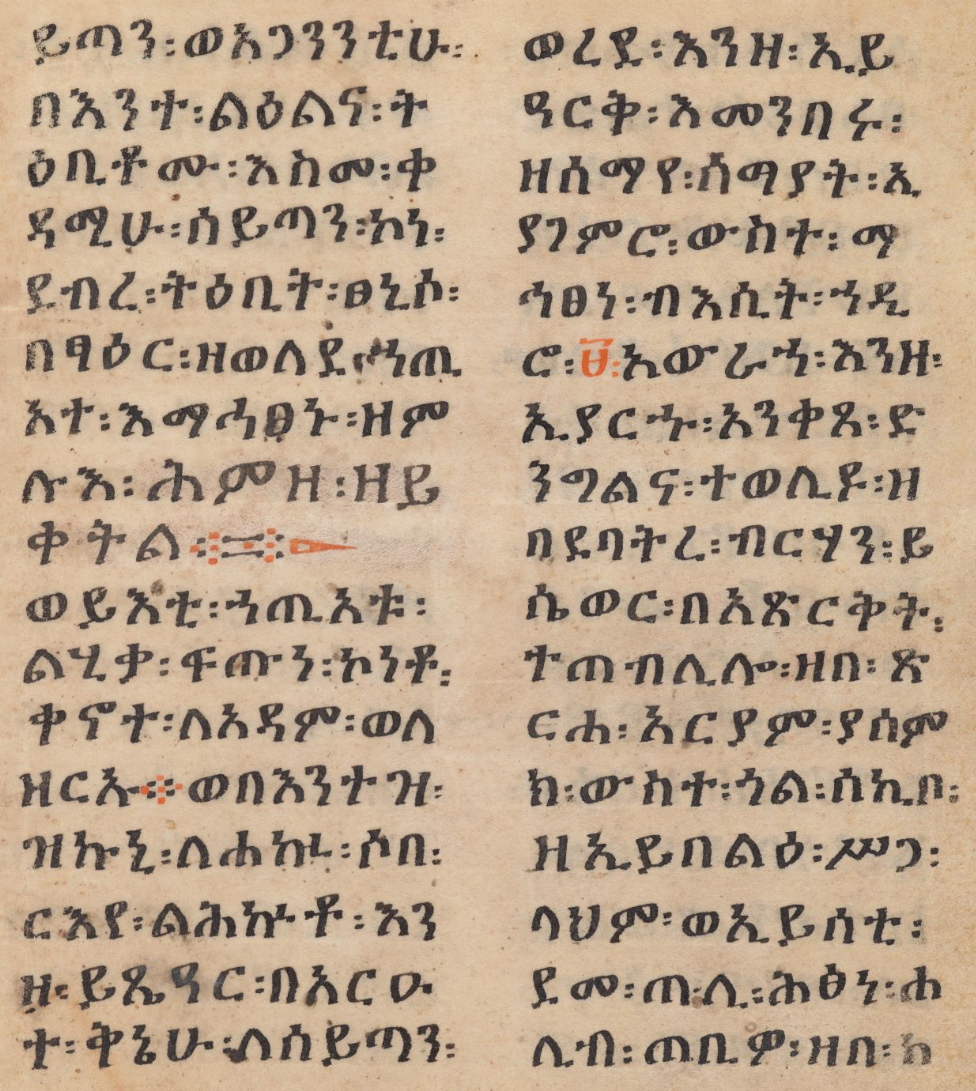 ይጣን፡ወአጋንንቲሁ፡
በእንተ፡ልዕልና፡ት
ዕቢቶሙ፡እስመ፡ቀ
ዳሚሁ፡ሰይጣን፡ኮነ፡
ደብረ፡ትዕቢት፡ፀኒሶ፡
በፃዕር፡ዘወለደ፡ኀጢ
አተ፡እማሕፀኑ፡ዘም
ሉእ፡ሕምዘ፡ዘይ
ቀትል፨
ወይእቲ፡ኀጢአቱ፡
ልሂቃ፡ፍጡን፡ኮነቶ፡
ቀኖተ፡ለአዳም፡ወለ
ዘርኡ፨ወበእንተ፡ዝ፡
ዝኩኒ፡ለሐከይ፡ሶበ፡
ርእየ፡ልሕኵቶ፡እን
ዘ፡ይጼዓር፡በአርዑ
ተ፡ቅኔሁ፡ለሰይጣን፡
ወረደ፡እንዘ፡ኢይ
ዓርቅ፡እመንበሩ፡
ዘሰማየ፡ሰማያት፡ኢ
ያገምሮ፡ውስተ፡ማ
ኅፀነ፡ብእሲት፡ኀዲ
ሮ፡፱፡አውራኀ፡እንዘ፡
ኢያርኁ፡አንቀጸ፡ድ
ንግልና፡ተወሊዶ፡ዘ
በደባትረ፡ብርሃን፡ይ
ሴወር፡በአጽርቅት፡
ተጠብሊሎ፡ዘበ፡ጽ
ርሐ፡አርያም፡ያሰም
ክ፡ውስተ፡ጎል፡ሰኪቦ፡
ዘኢይበልዕ፡ሥጋ፡
ላህም፡ወኢይሰቲ፡
ደመ፡ጠሊ፡ሕፅነ፡ሐ
ሊብ፡ጠቢዎ፡ዘበ፡ከ